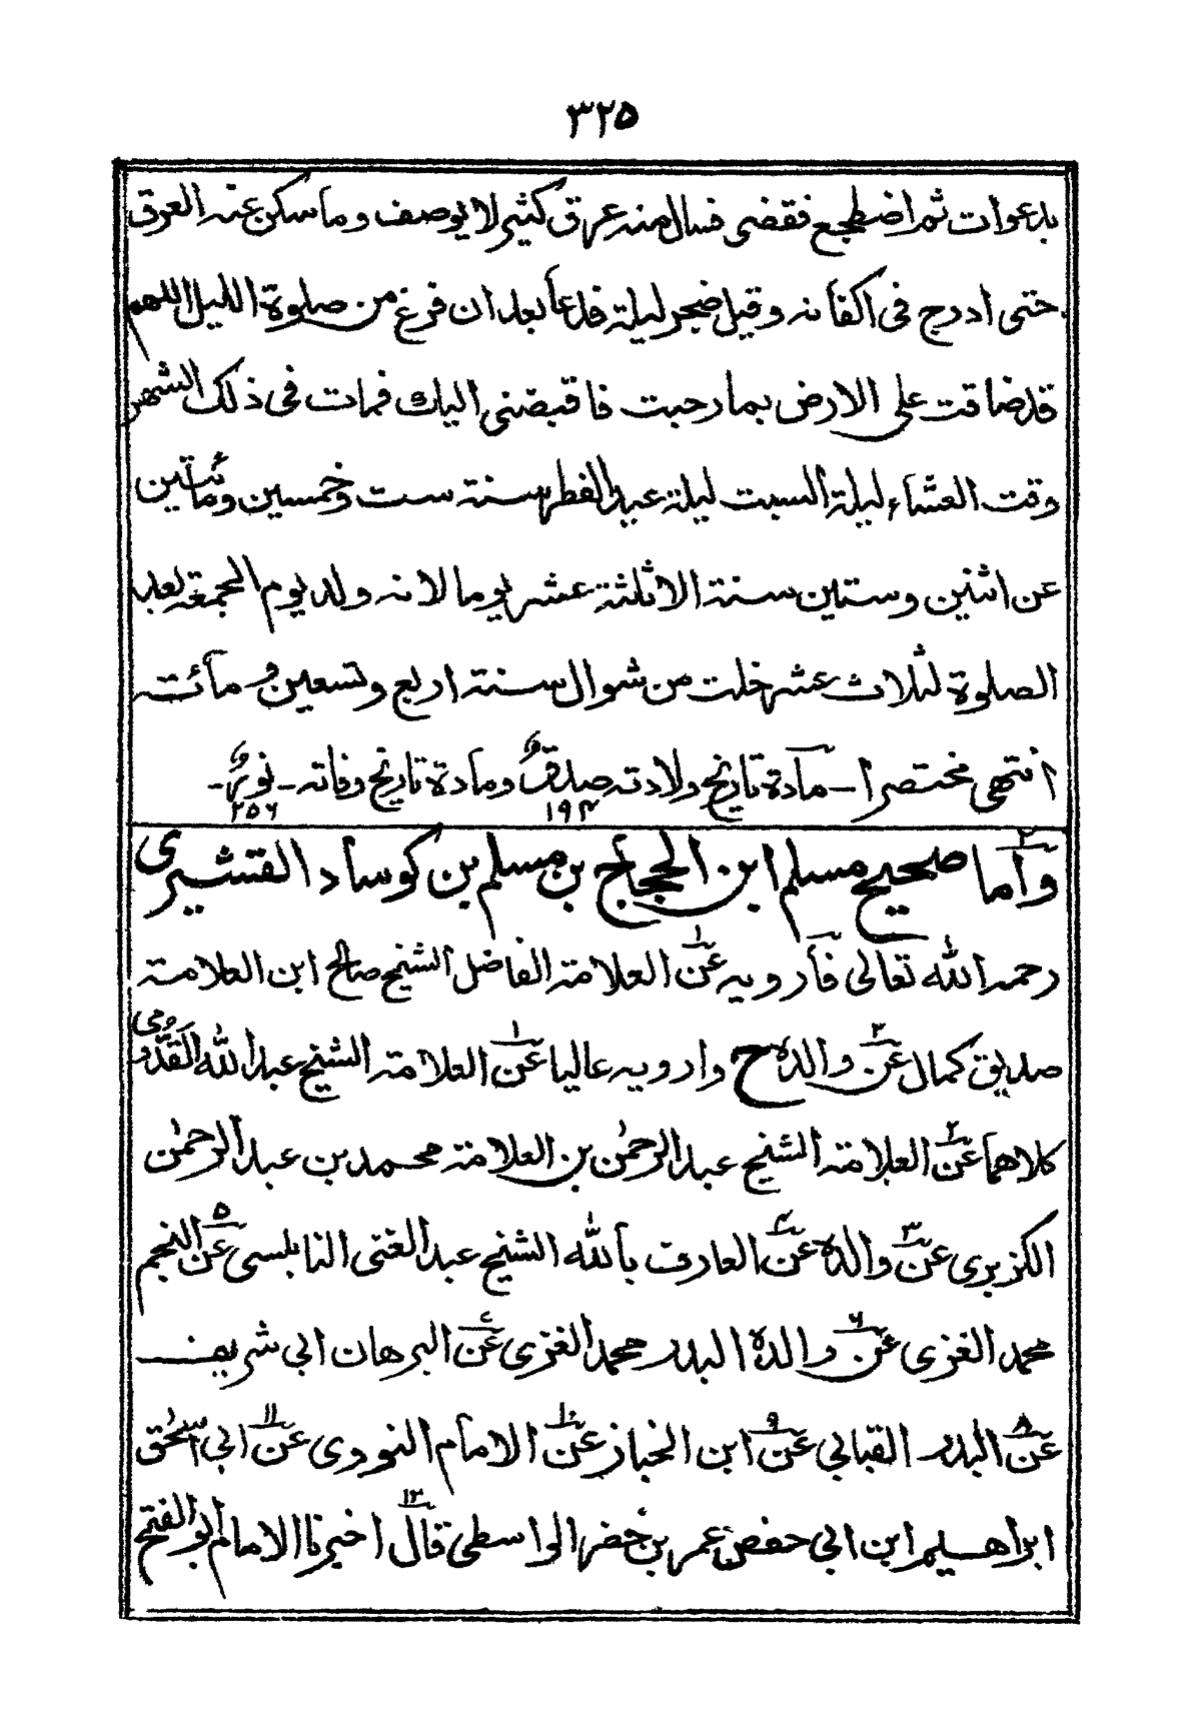 ٣٢٥
بدعوات ثم اضطجع فقضى فسال منه عرق كثير لا يوصف وما سكن عنه العرق
حتى ادرج فى اكفانه وقيل ضجر ليلة فدعا بعد ان فرغ من صلوة الليل اللهم
قد ضاقت على الارض بما رحبت فاقبضنى اليك فمات فى ذلك الشهر
وقت العشاء ليلة السبت ليلة عيد الفطر سنة ست وخمسين ومائتين
عن اثنين وستين سنة الا ثلثة عشر يوما لانه ولد يوم الجمعة بعد
الصلوة لثلاث عشر خلت من شوال سنة اربع وتسعين ومائة
انتهى مختصرا - مادة تاريخ ولادته صدقٌ ومادة تاريخ وفاته - نورٌ -
١٩٤ ٢٥٦
٢ واما صحيح مسلم ابن الحجاج بن مسلم بن كوساد القشيرى
رحمه الله تعالى فارويه عن١ العلامة الفاضل الشيخ صالح ابن العلامة
صديق كمال عن٢ والده ح وارويه عاليا عن١ العلامة الشيخ عبد الله القدومى
كلاهما عن٢ العلامة الشيخ عبد الرحمٰن بن العلامة محمد بن عبد الرحمٰن
الكزبرى عن٣ والده عن٤ العارف بالله الشيخ عبد الغنى النابلسى عن٥ النجم
محمد الغزى عن٦ والده البدر محمد الغزى عن٧ البرهان ابي شريف
عن٨ البدر القبابي عن٩ ابن الخباز عن١٠ الامام النووى عن١١ ابي اسحٰق
ابراهيم ابن ابي حفص عمر بن خضر الواسطى قال١٢ اخبرنا الامام ابو الفتح